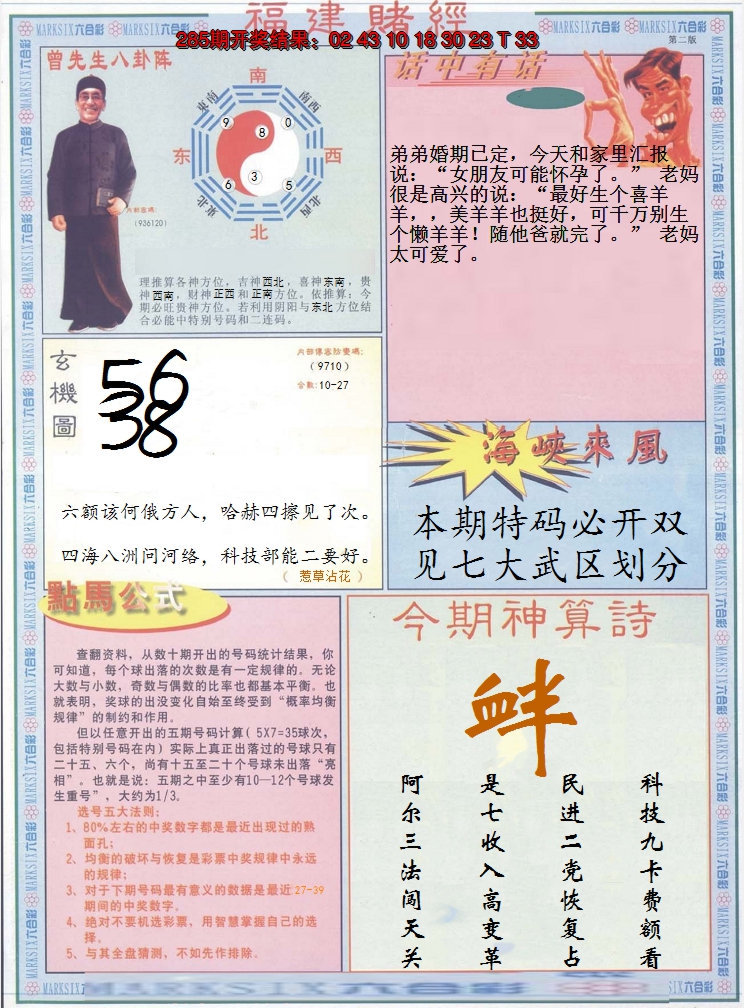 福建賭經
285期开奖结果：02 43 10 18 30 23 T 33
MARKSIX六合彩
第二版
曾先生八卦阵
南
东南
西南
9
8
0
东
西
6
3
5
东北
西北
北
内部密碼:
(936120)
理推算各神方位，吉神西北，喜神东南，贵
神西南，财神正西和正南方位。依推算：今
期必旺贵神方位。若利用阴阳与东北方位结
合必能中特别号码和二连码。
话中有话
弟弟婚期已定，今天和家里汇报
说：“女朋友可能怀孕了。” 老妈
很是高兴的说：“最好生个喜羊
羊，，美羊羊也挺好，可千万别生
个懒羊羊！随他爸就完了。” 老妈
太可爱了。
玄機圖
56
38
内部傳密防變碼:
（9710）
合数:10-27
六额该何俄方人，哈赫四擦见了次。
四海八洲问河络，科技部能二要好。
（ 惹草沾花 ）
海峽來風
本期特码必开双
见七大武区划分
點馬公式
查翻资料，从数十期开出的号码统计结果，你
可知道，每个球出落的次数是有一定规律的。无论
大数与小数，奇数与偶数的比率也都基本平衡。也
就表明，奖球的出没变化自始至终受到“概率均衡
规律”的制约和作用。
但以任意开出的五期号码计算( 5X7=35球次，
包括特别号码在内) 实际上真正出落过的号球只有
二十五、六个，尚有十五至二十个号球未出落“亮
相”。也就是说：五期之中至少有10—12个号球发
生重号”，大约为1/3。
选号五大法则：
1、80%左右的中奖数字都是最近出现过的熟
面孔；
2、均衡的破坏与恢复是彩票中奖规律中永远
的规律；
3、对于下期号码最有意义的数据是最近27-39
期间的中奖数字。
4、绝对不要机选彩票，用智慧掌握自己的选
择。
5、与其全盘猜测，不如先作排除。
今期神算詩
衅
科技九卡费额看
民进二党恢复占
是七收入高变革
阿尔三法闯天关